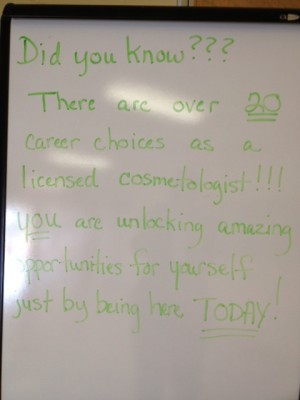 Did you know???
There are over 20
career choices as a
licensed cosmetologist!!!
you are unlocking amazing
opportunities for yourself
just by being here TODAY!